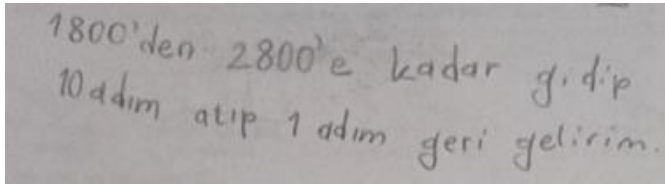 1800'den 2800'e kadar gidip
10 adım atıp 1 adım geri gelirim.